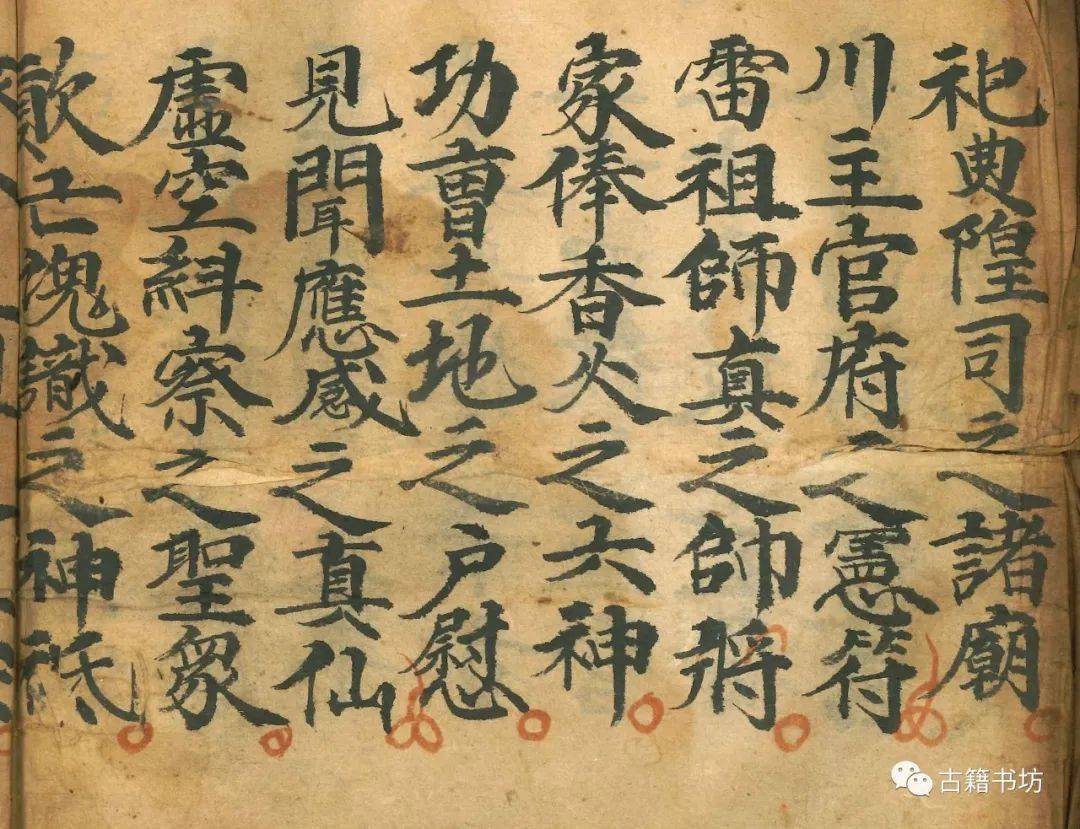 祀典隍司之諸廟
川主官府之憲符
雷祖師真之帥將
家俸香火之六神
功曹土地之户慰
見聞應感之真仙
虛空糾察之聖眾
歆亡魂識之神祇
古籍书坊